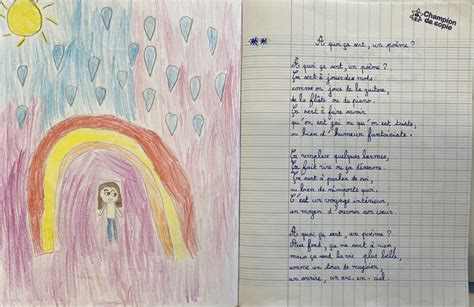 Champion
de copie
A quoi ça sert, un poème ?
A quoi ça sert, un poème ?
Ça sert à jouer des mots
comme on joue de la guitare,
de la flûte ou du piano.
Ça sert à faire savoir
qu'on est gai ou qu'on est triste,
ou bien d'humeur fantaisiste.
Ça remplace quelques larmes,
Ça fait rire ou ça désarme.
Ça sert à parler de soi,
ou bien de n'importe quoi.
C'est un voyage intérieur,
un moyen d'ouvrir son cœur.
A quoi ça sert, un poème ?
Au fond, ça ne sert à rien,
mais ça rend la vie plus belle,
comme un tour de magicien,
un sourire, un arc-en-ciel.